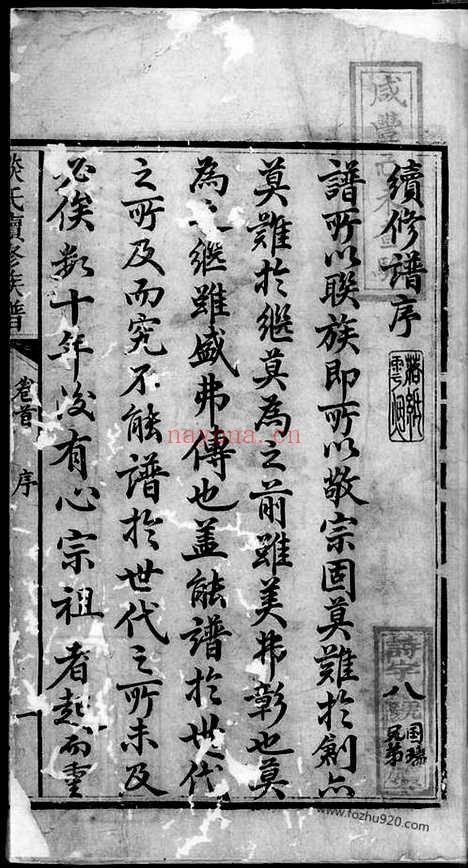 續修譜序
譜所以聯族即所以敬宗固莫難於創亦
莫難於繼莫為之前雖美弗彰也莫
為之繼雖盛弗傳也蓋能譜於世代
之所及而究不能譜於世代之所未及
必俟數十年後有心宗祖者起而重
氏續修族譜
卷首
序
咸豐
八
国瑞
兄弟
nayona.cn
www.fozhu920.com